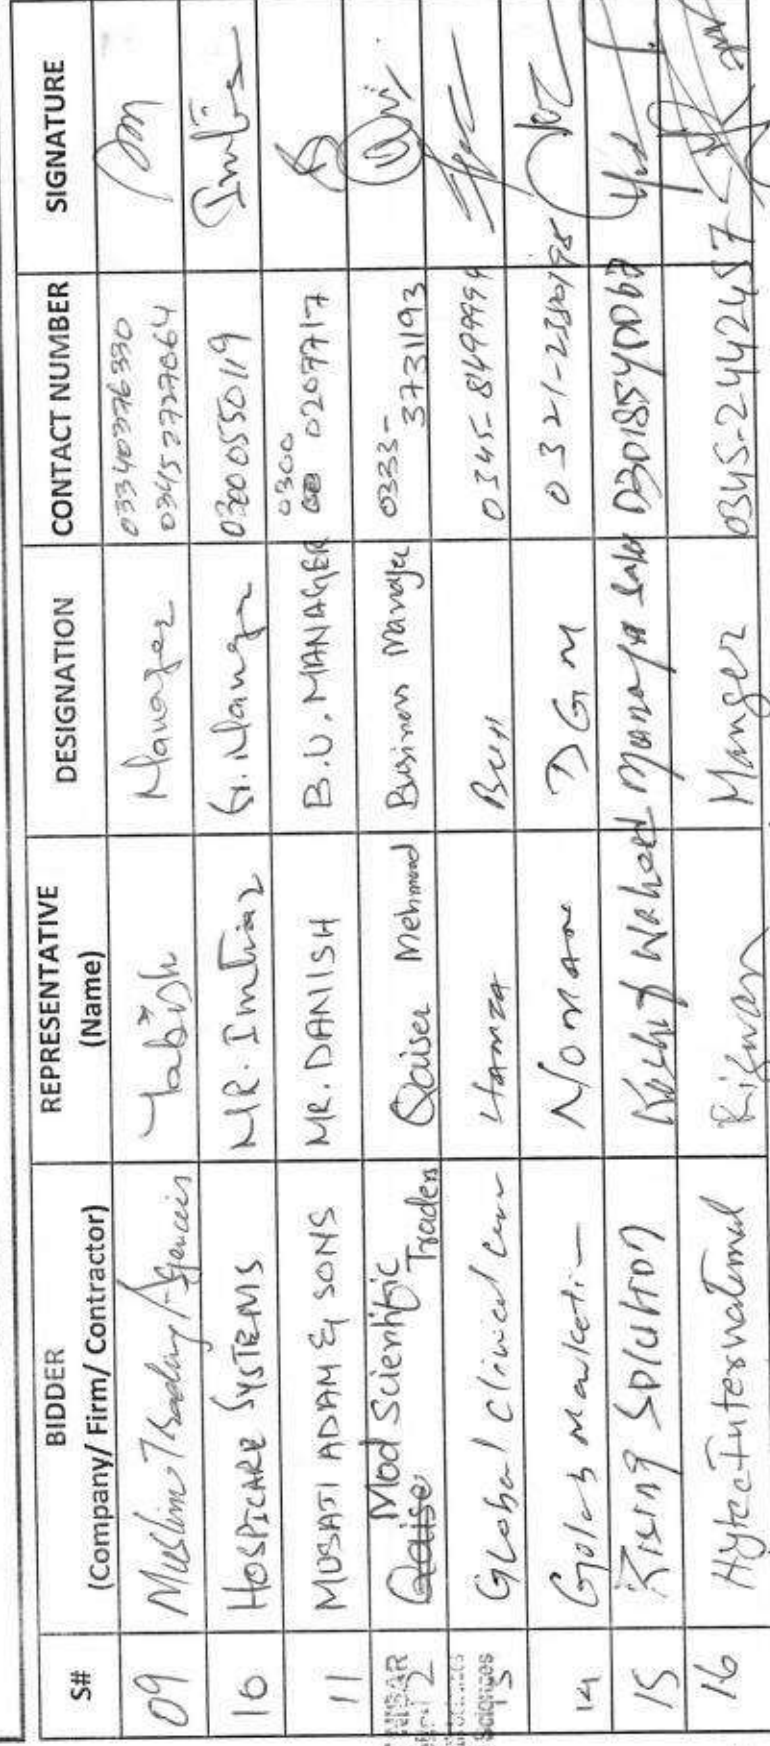 S# BIDDER (Company/ Firm/ Contractor) REPRESENTATIVE (Name) DESIGNATION CONTACT NUMBER SIGNATURE
09 Muslim Trading Agencies Tabish Manager 03340376330 03452727064
10 HOSPICARE SYSTEMS MR. Imtiaz G. Manager 03000550119 Imtiaz
11 MUSAJI ADAM & SONS MR. DANIISH B.U. MANAGER 0300 0207717
2 Mod Scientific Traders Qaiser Mehmood Business Manager 0333-3731193
13 Global Clinical Hamza BUH 0345-8499999
14 Noman DGM 0321-
15 Rising Solution Waheed Manager
16 Hytec International Rizwan Manger 0345-2442457